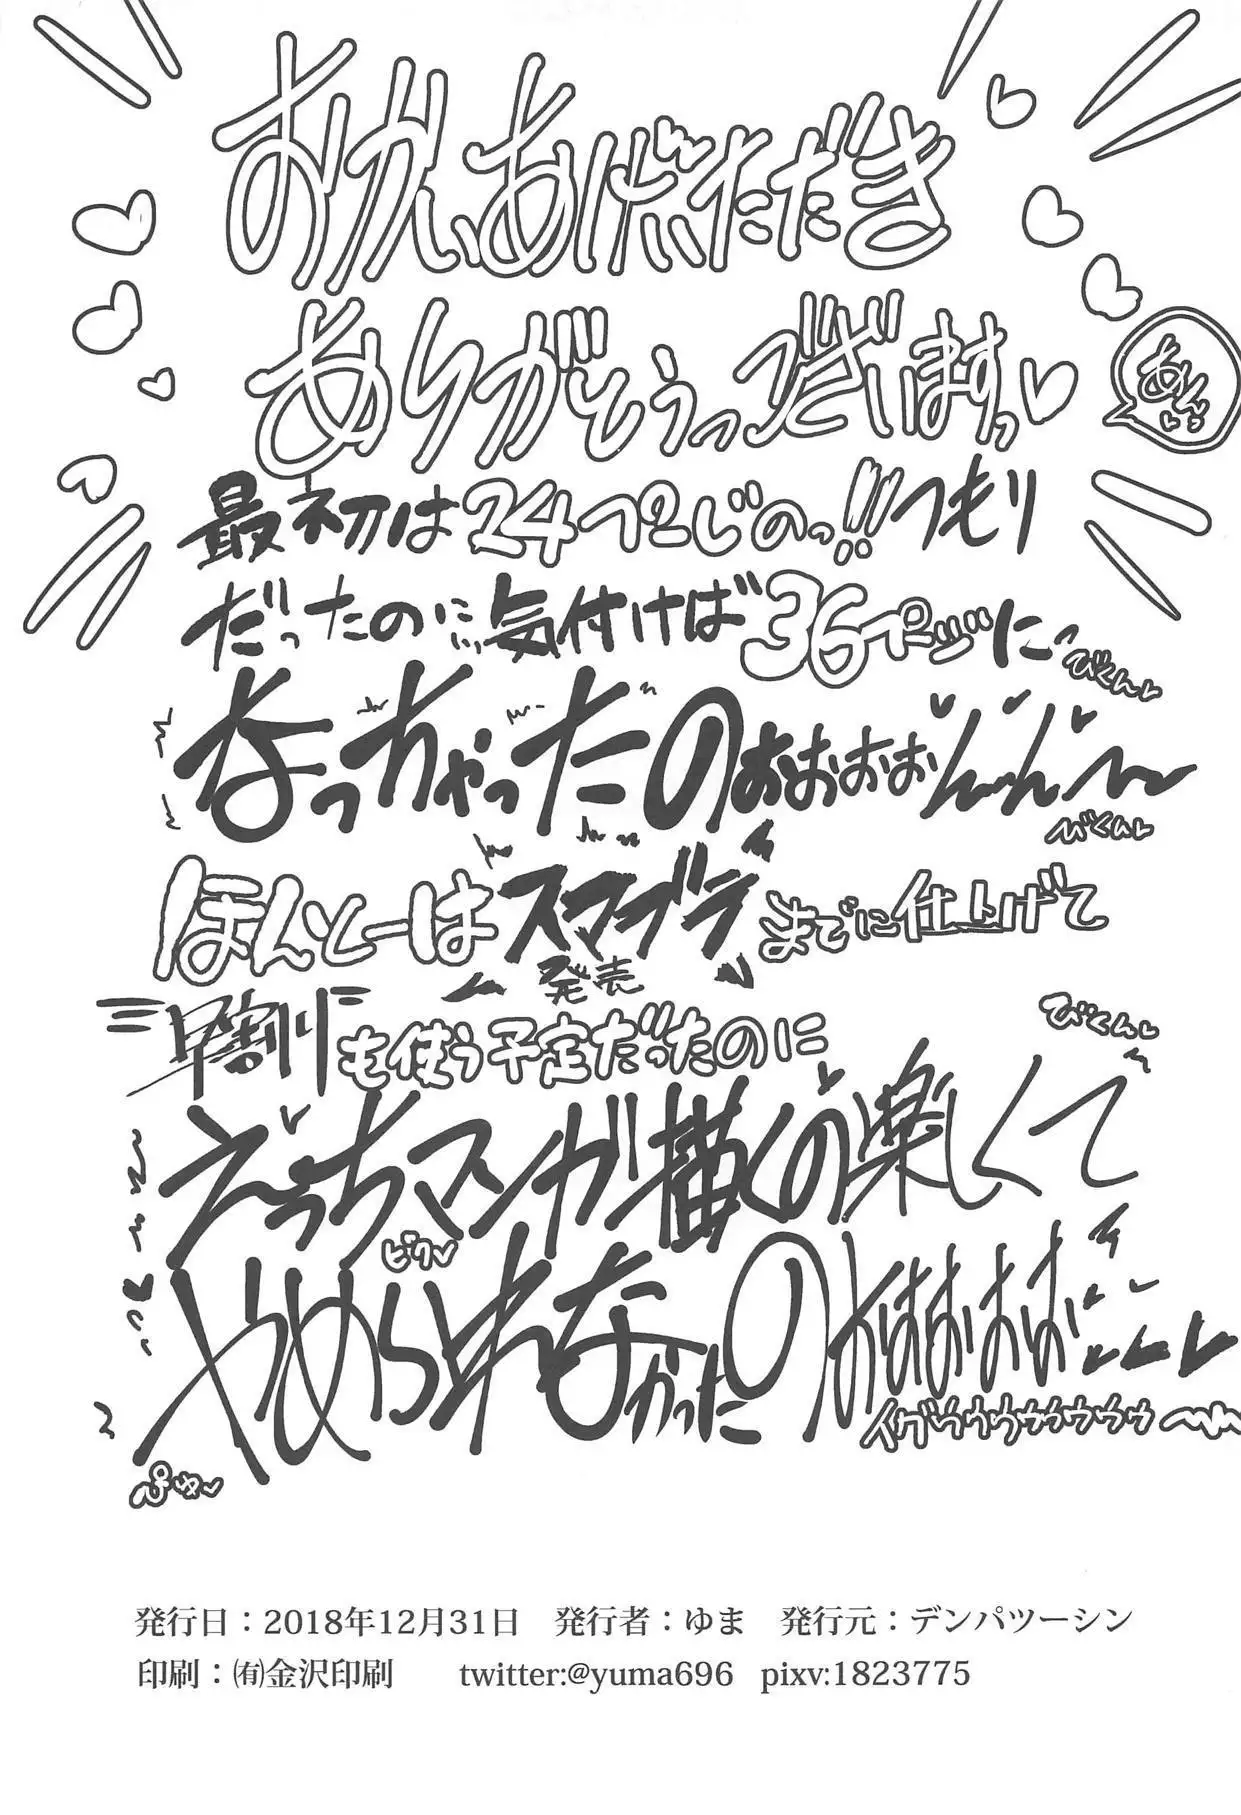 おかいあげいただき
ありがとうっございますっ♡
最初は24ページのっ!!つもり
だったのに…気付けば36ページに
びくんっ
なっちゃったのぉおおおおん゛ん゛
びくんっ
ほんとーはスマブラまでに仕上げて
発売
早割りも使う予定だったのに
びくんっ
えっちマンガ描くの楽しくて
ビクッ
やめられなかったのぉ
イグゥゥゥゥゥゥゥゥ
ぴゅっ
発行日：2018年12月31日　発行者：ゆま　発行元：デンパツーシン
印刷：㈲金沢印刷　　twitter:@yuma696　pixv:1823775